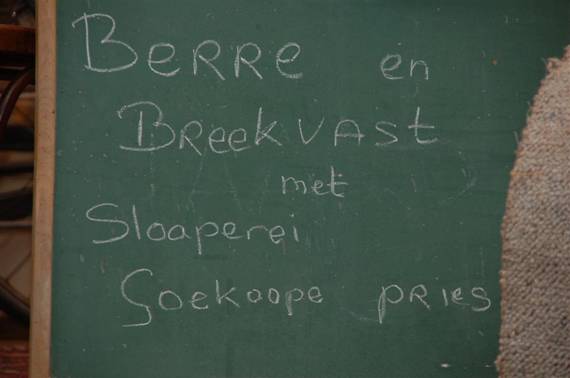 BERRE en
BReekVAST
met
Slaaperei
Goekoope pRies